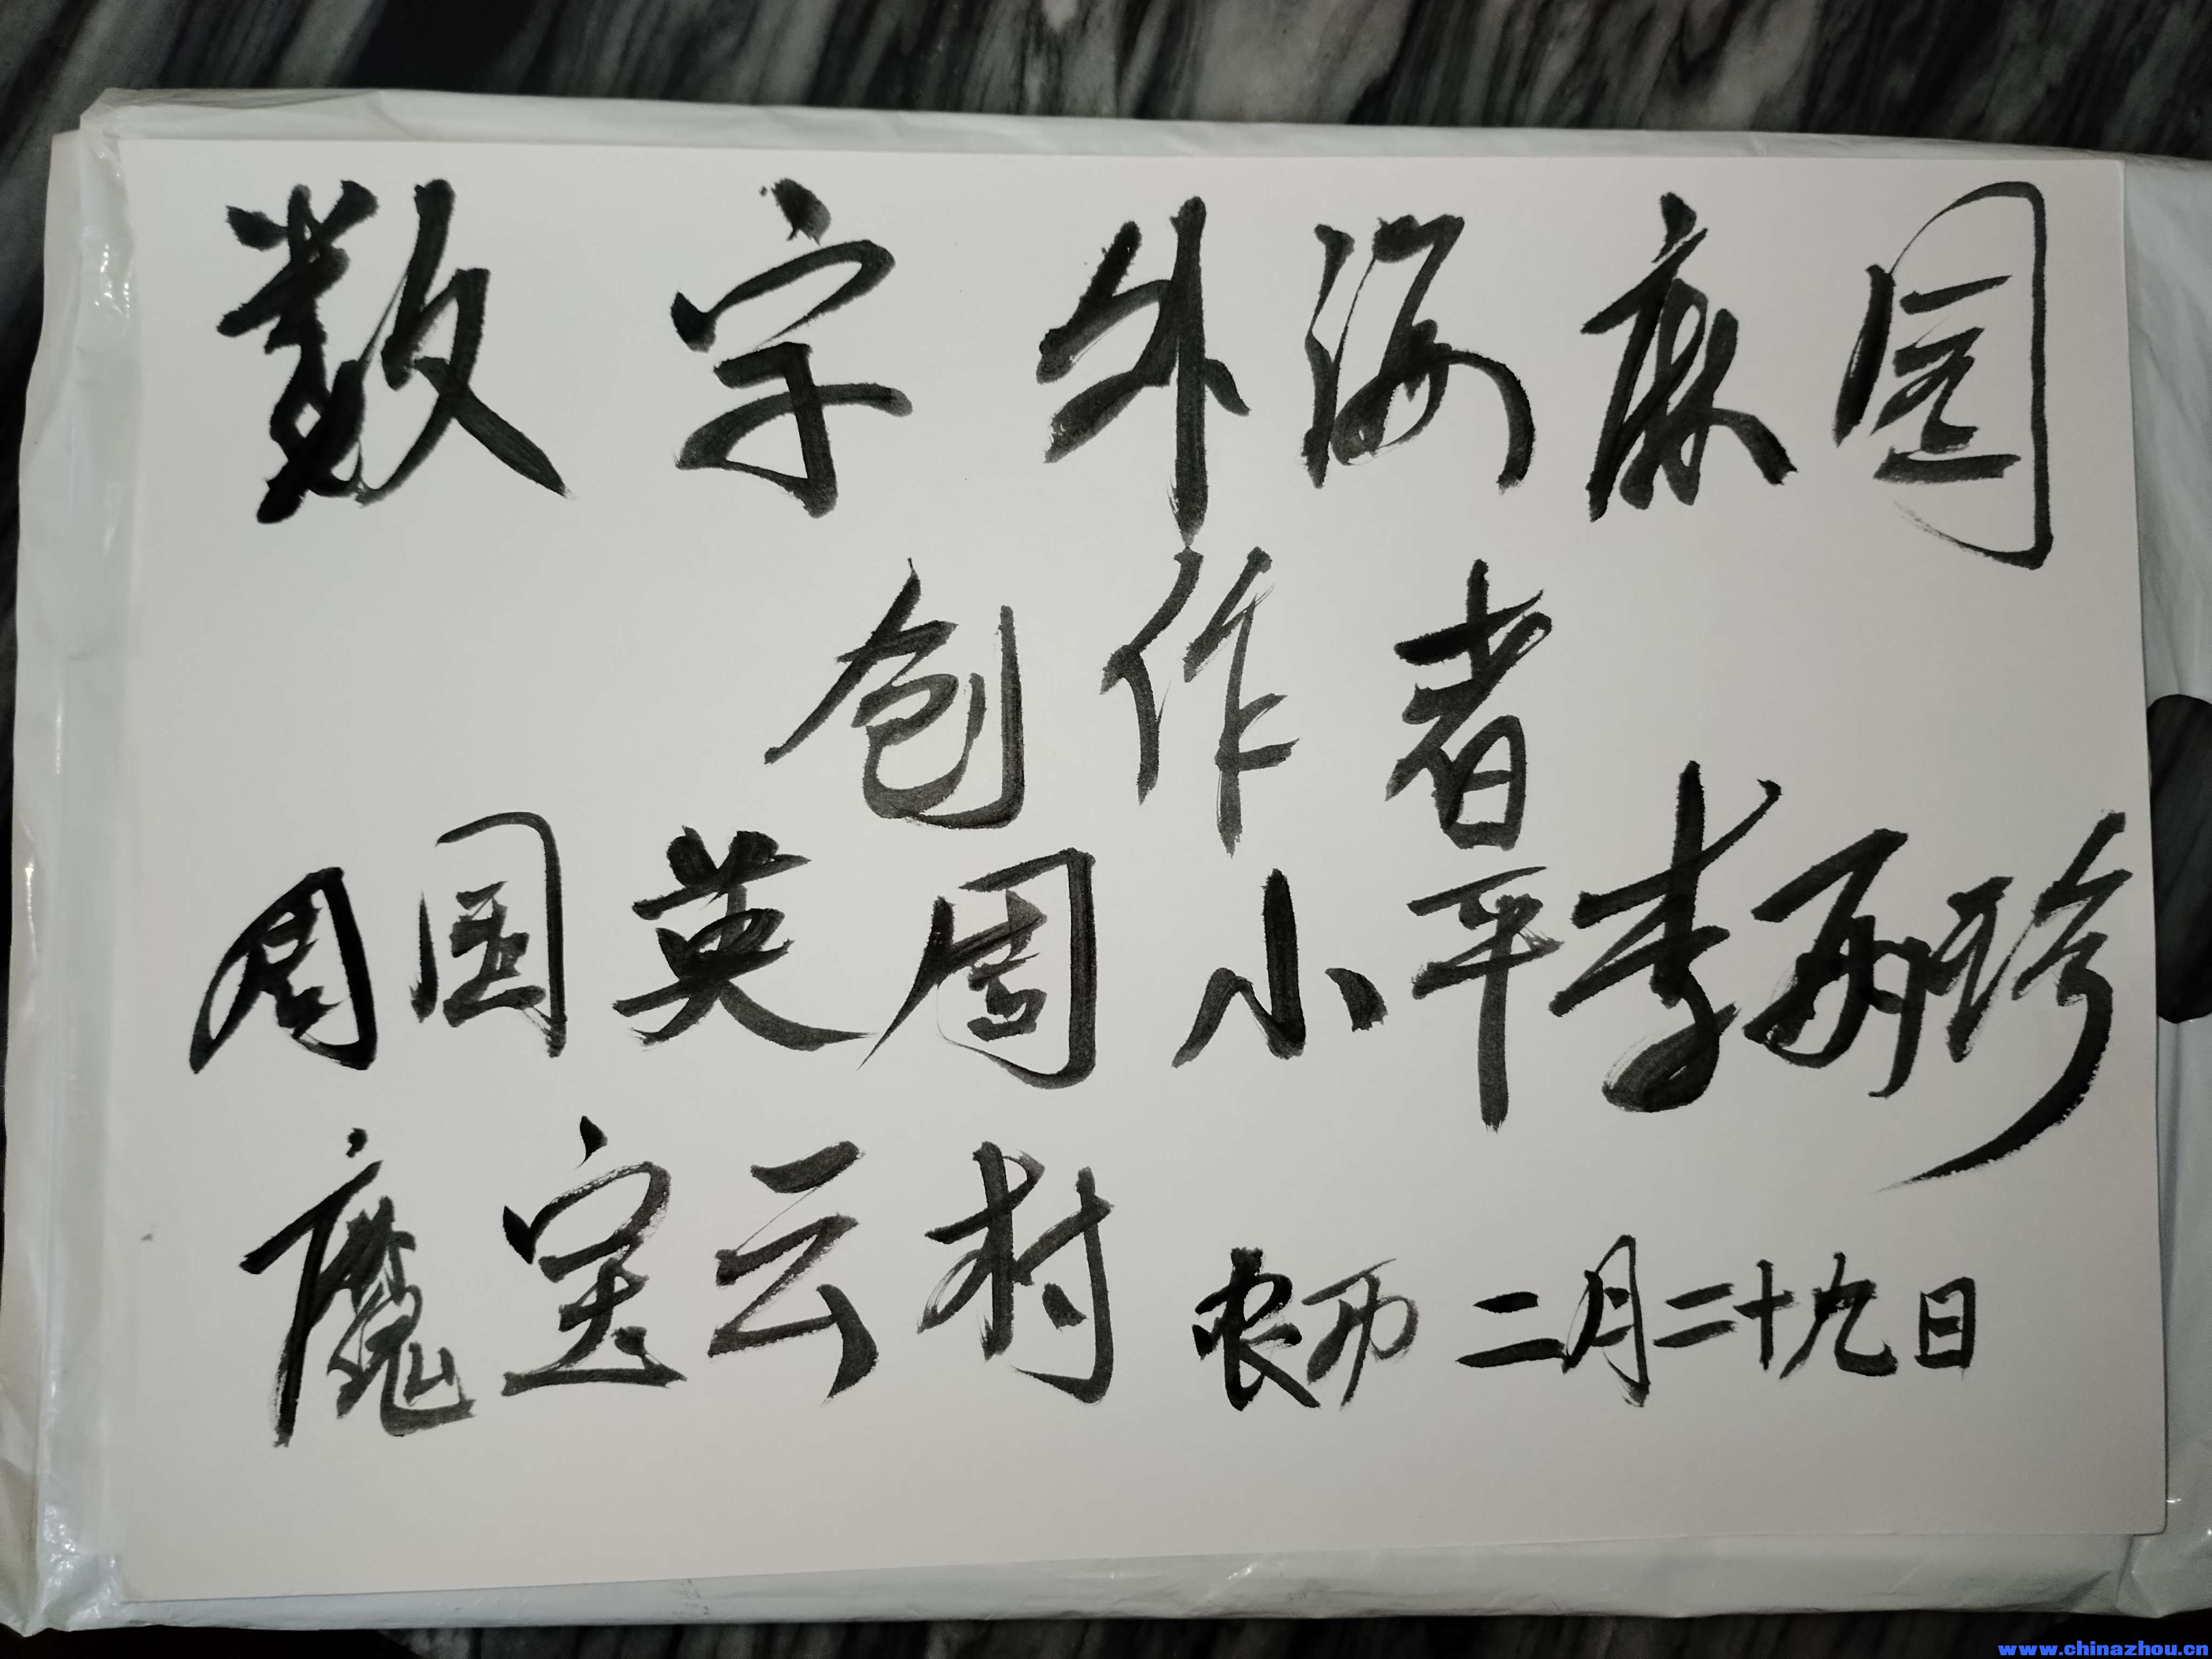 数字外海麻园
创作者
周国英周小平李丽珍
魔室云村 农历二月二十九日
www.chinazhou.cn